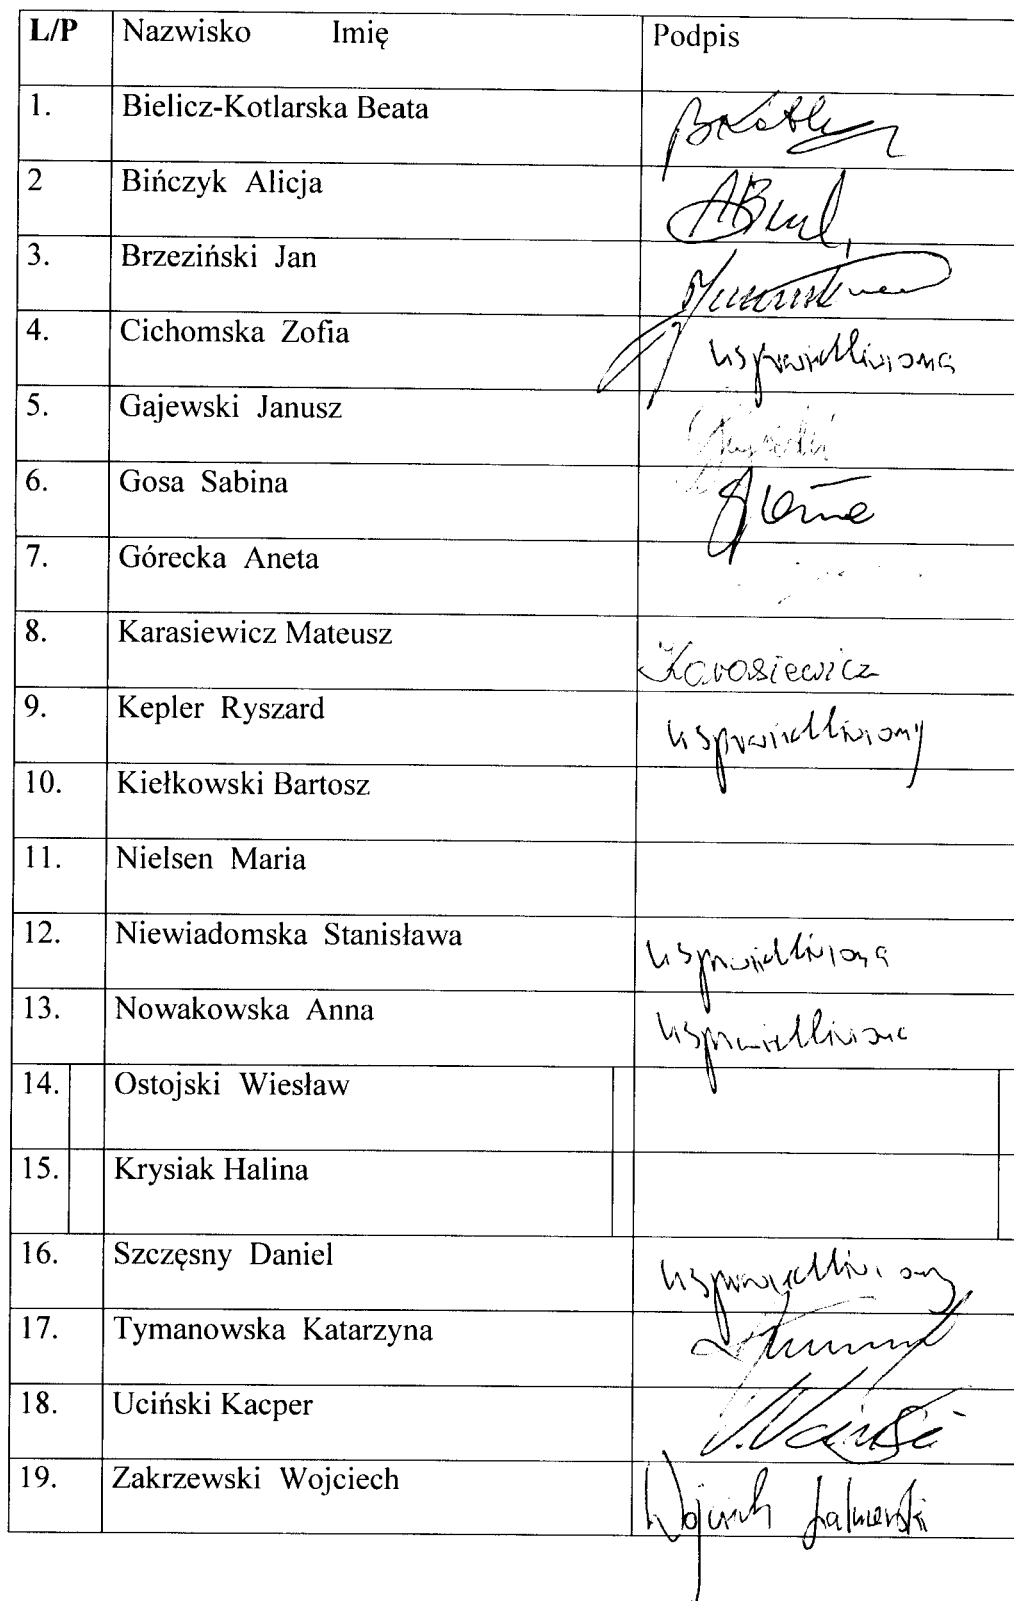 L/P Nazwisko Imię Podpis
1. Bielicz-Kotlarska Beata
2 Bińczyk Alicja
3. Brzeziński Jan
4. Cichomska Zofia usprawiedliwiona
5. Gajewski Janusz
6. Gosa Sabina
7. Górecka Aneta
8. Karasiewicz Mateusz Karasiewicz
9. Kepler Ryszard usprawiedliwiony
10. Kiełkowski Bartosz
11. Nielsen Maria
12. Niewiadomska Stanisława usprawiedliwiona
13. Nowakowska Anna usprawiedliwiona
14. Ostojski Wiesław
15. Krysiak Halina
16. Szczęsny Daniel usprawiedliwiony
17. Tymanowska Katarzyna
18. Uciński Kacper
19. Zakrzewski Wojciech Wojciech Zakrzewski